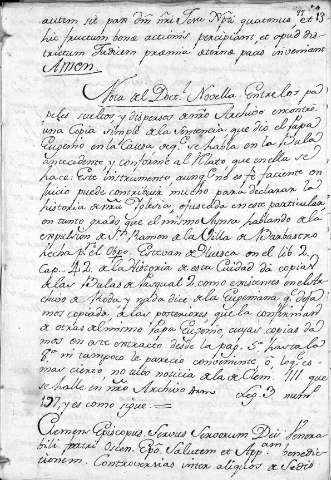 autem sic pax Dñi ñri Jesu Xpti quatenus et
hic fructum bonæ actionis percipiant et apud dis-
trictum Judicem præmia æternæ pacis inveniant
Amen
Nota del Doct.r Novella. Entre los pa
peles sueltos y dispersos de nro Archivo encontre
una Copia simple de la Sentencia que dio el Papa
Eugenio en la Causa de q.e se habla en la Bula
antecedente y conforme al Relato que en ella se
hace. Este instrumento aunq.e no es fe faciente en
juicio puede contribuir mucho para declarar la
historia de nra Iglesia, ofuscada en este particular
en tanto grado que el mismo hablando de la
expulsion de S.n Ramon de la Villa de Barbastro
hecha p.r el Obpo. Estevan de Huesca en el lib. 2
Cap. 42 de la Historia de esta Ciudad da copias
de las Bulas de Pasqual 2. como existentes en el Ar-
chivo de Roda y nada dice de la Eugeniana q.e deja-
mos copiada, de las posteriores que la confirman
de otras del mismo Papa Eugenio cuyas copias da
mos en este extracto desde la pag. 5.a hasta la
9.a ni tampoco le parecio conveniente ó loq.e es
mas cierto no tubo noticia de la de Clem. III que
se halla en nro Archivo Leg. 3 num.o
197, y es como sigue. =
Clemens Episcopus Servus Servorum Dei Venera
bili patri Oscen. Epo. Salutem et Ap.am benedic-
tionem. Controversias inter aliquos de Sedis